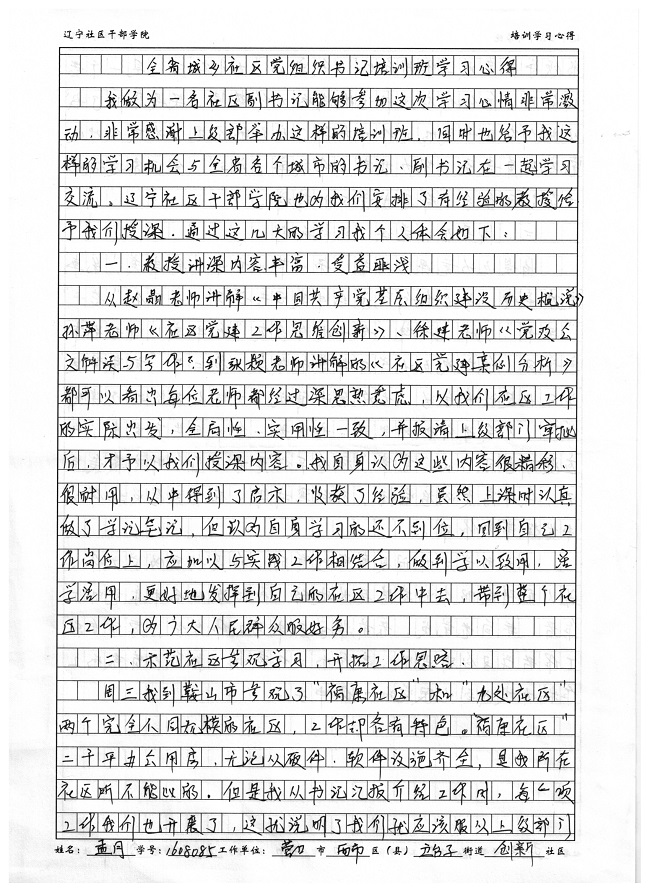 辽宁社区干部学院 培训学习心得
全省城乡社区党组织书记培训班学习心得
我做为一名社区副书记能够参加这次学习心情非常激
动，非常感谢上级部举办这样的培训班，同时也给予我这
样的学习机会与全省各个城市的书记、副书记在一起学习
交流，辽宁社区干部学院也为我们安排了有经验的教授给
予我们授课。通过这几天的学习我个人体会如下：
一、教授讲课内容丰富，受益匪浅
从赵 老师讲解《中国共产党基层组织建设历史概说》
孙萍老师《社区党建工作思维创新》、徐建老师《党政公
文解读与写作》到耿颖老师讲解的《社区党建案例分析》
都可以看出每位老师都经过深思熟虑，以我们社区工作
的实际出发，全局性、实用性一致，并报请上级部门审批
后，才予以我们授课内容。我自身认为这些内容很精彩、
很耐用，从中得到了启示，收获了经验，虽然上课时认真
做了学记笔记，但认为自身学习的还不到位，回到自己工
作岗位上，应加以与实践工作相结合，做到学以致用，活
学活用，更好地发挥到自己的社区工作中去，带到整个社
区工作，为广大人民群众服好务。
二、示范社区参观学习，开拓工作思路。
周三我到鞍山市参观了“荷康社区”和“九处社区”
两个完全不同规模的社区，工作却各有特色。“荷康社区”
二千平办公用房，无论从硬件、软件设施齐全，是我所在
社区所不能比的。但是我从书记汇报介绍工作时，每个项
工作我们也开展了，这就说明了我们就应该服从上级部门
姓名：孟月 学号：1608085 工作单位：营口 市 西市 区（县） 五台子 街道 创新 社区